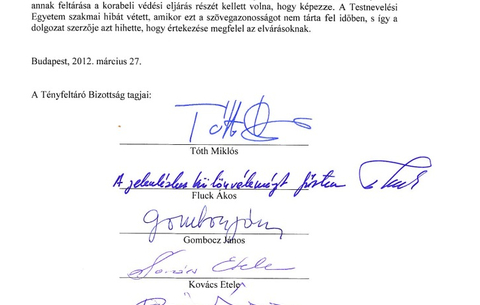 annak feltárása a korabeli védési eljárás részét kellett volna, hogy képezze. A Testnevelési
Egyetem szakmai hibát vétett, amikor ezt a szövegazonosságot nem tárta fel időben, s így a
dolgozat szerzője azt hihette, hogy értekezése megfelel az elvárásoknak.
Budapest, 2012. március 27.
A Tényfeltáró Bizottság tagjai:
Tóth
Tóth Miklós
A jelentéshez különvéleményt fűztem
Fluck Ákos
Gombocz János
Kovács Etele
Kovács Etele